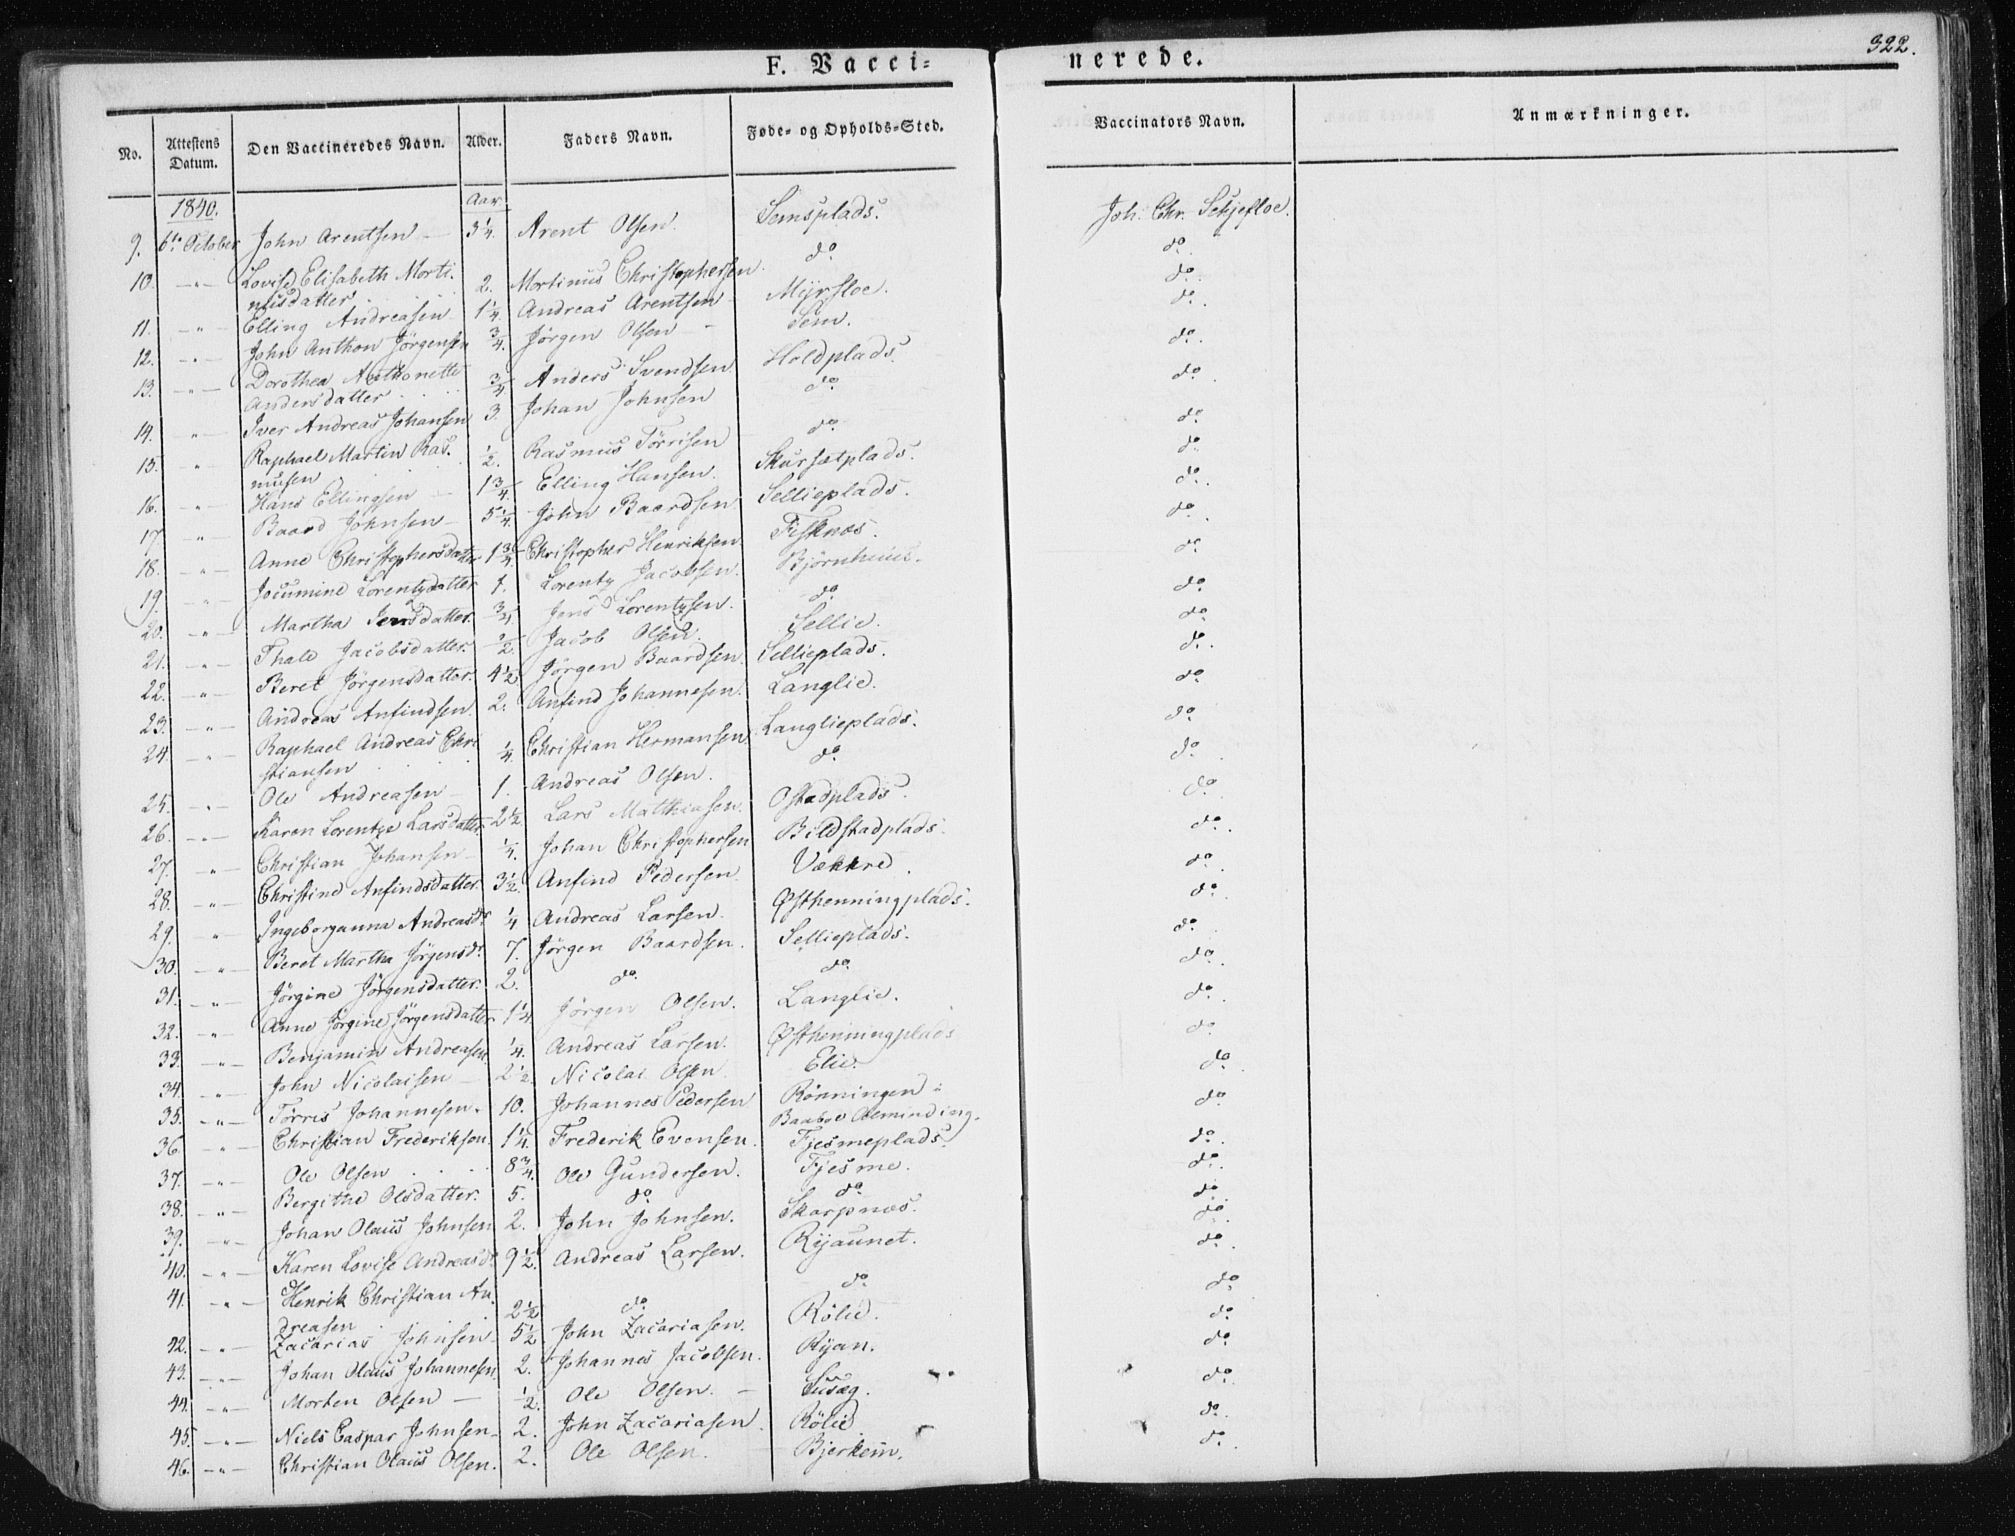 322.
F. Vacci= nerede.
No. Attestens Datum. Den Vaccineredes Navn. Alder. Faders Navn. Føde- og Opholds-Sted. Vaccinators Navn. Anmærkninger.
1840. Aar
9. 6te October John Arentsen — 5 1/4. Arent Olsen. Semsplads. Joh. Chr. Schjefloe.
10. —"— Lovise Elisabeth Morti- 2. Mortinus Christophersen do do
nusdatter
11. —"— Elling Andreasen 1 1/4. Andreas Arentsen Myrsloe. do
12. —"— John Anthon Jørgensen 3/4. Jørgen Olsen — Sem. do.
13. —"— Dorothea Anthonette 3/4. Anders Svendsen Holdplads. do.
Andersdatter
14. " — Iver Andreas Johansen 3. Johan Johnsen do do.
15. " Raphael Martin Ras- 1/2. Rasmus Törrisen do. do.
musen
16. " — Hans Ellingsen — 1 3/4. Elling Hansen. Skursatplads. do.
17 " — Baard Johnsen — 5 1/4. John Baardsen Sellieplads. do.
18. —"— Anne Christophersdatter 1 3/4 Christopher Henriksen Fisknæs. do.
19. —"— Jocumine Lorentzdatter 1. Lorentz Jacobsen. Bjørnhuus. do.
20. —"— Martha Jensdatter. 3/4. Jens Lorentzsen. do do
21. —"— Thale Jacobsdatter. 1/2. Jacob Olsen. Sellie. do.
22. —"— Beret Jørgensdatter. 4 1/2 Jørgen Baardsen. Sellieplads. do.
23. —"— Andreas Anfindsen. 2. Anfind Johannesen. Langlie. do.
24. —"— Raphael Andreas Chri- 1/4. Christian Hermansen Langlieplads. do.
stiansen
25. —"— Ole Andreasen — 1. Andreas Olsen. do do.
26. —"— Karen Lorentze Larsdatter 2 1/2 Lars Matthiasen. Ostadplads. do
27. —"— Christian Johansen — 1/4. Johan Christophersen Bildstadplads. do.
28. —"— Christine Anfindsdatter. 3 1/2. Anfind Pedersen Vækkre. do.
29. " Ingeborganna Andreasdr 1/4 Andreas Larsen. Østhenningplads. do.
30. —"— Beret Martha Jörgensdr. 7. Jørgen Baardsen. Sellieplads. do.
31. —"— Jörgine Jørgensdatter. 2. do. do. do.
32. " Anne Jörgine Jörgensdatter 1 1/4. Jörgen Olsen. Langlie. do.
33. —"— Benjamin Andreasen. 1/4. Andreas Larsen. Østhenningplads do.
34. —"— John Nicolaisen — 2 1/2. Nicolai Olsen Elie. do.
35. —"— Törris Johannesen. 10. Johannes Pedersen Rönningen i do.
Baabve Alminding.
36. —"— Christian Frederiksen 1 1/4. Frederik Evensen. Fjesmeplads. do.
37. —"— Ole Olsen 8 3/4. Ole Gundersen. Fjesme. do.
38. —"— Bergithe Olsdatter. 5. do do do.
39. —"— Johan Olaus Johnsen 2. John Johnsen. Skarpnæs. do.
40. —"— Karen Lovise Andreasdr 9 1/2. Andreas Larsen. Ryaunet. do.
41. —"— Henrik Christian An- 2 1/2 do. do. do.
dreasen
42. —"— Zacarias Johnsen — 5 1/2 John Zacariasen. Rölie. do.
43. —"— Johan Olaus Johannesen 2. Johannes Jacobsen. Ryan. do
44. —"— Morten Olsen — 1/2. Ole Olsen. — Susæg. do.
45. —"— Niels Caspar Johnsen — 2. John Zacariasen. Rölie do.
46. —"— Christian Olaus Olsen. 2. Ole Olsen. Bjerkem. do.